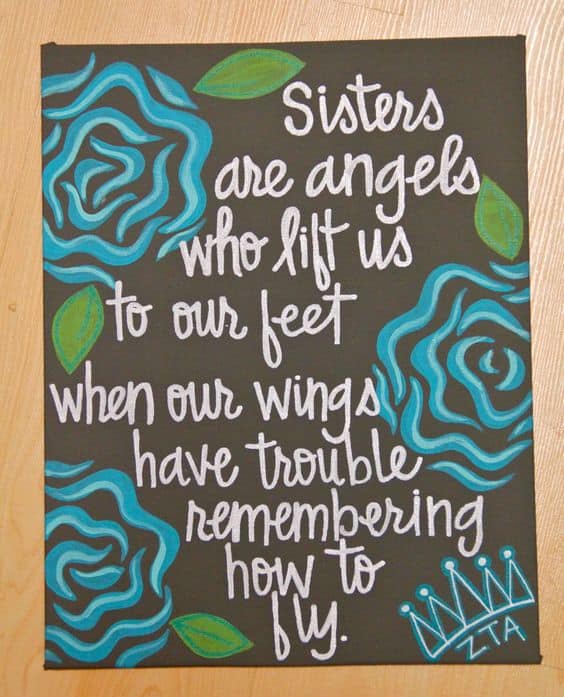 Sisters
are angels
who lift us
to our feet
when our wings
have trouble
remembering
how to
fly.
ZTA